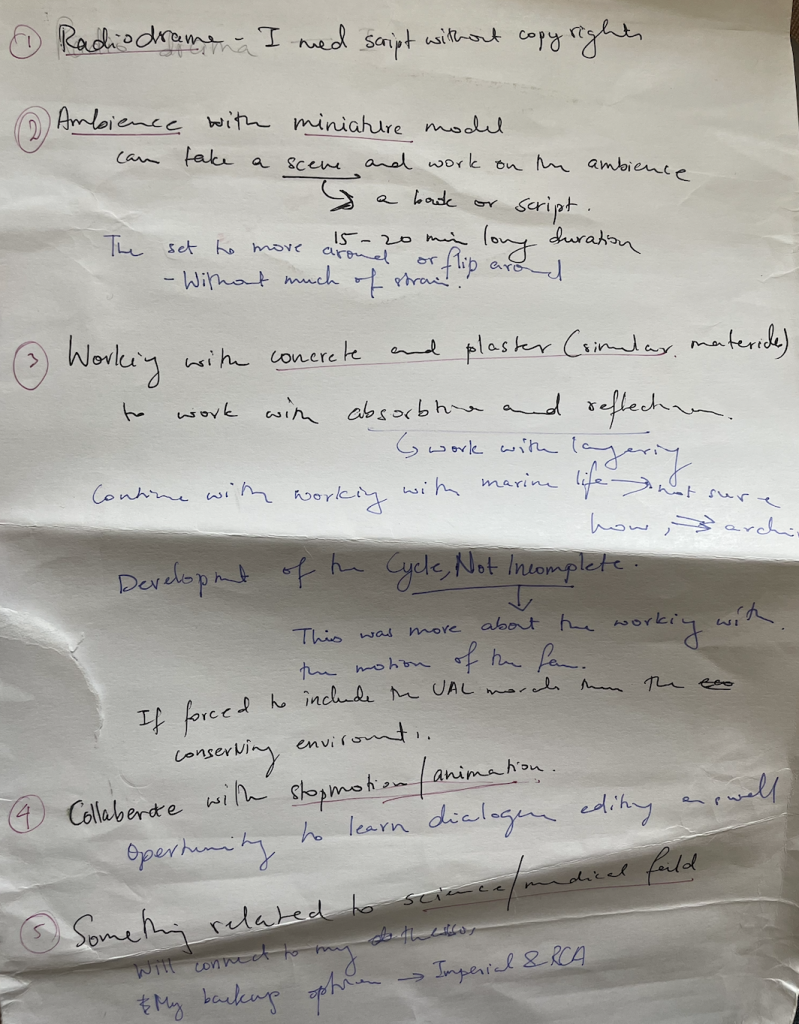 ① Radiodrama - I need script without copyrights
② Ambience with miniature model
can take a scene and work on the ambience
↳ a book or script.
15-20 min long duration
The set to move around or flip around
- Without much of strain.
③ Working with concrete and plaster (similar materials)
to work with absorbtion and reflection.
↳ work with layering
Continue with working with marine life → not sure
how, ⇒ archi
Development of the Cycle, Not Incomplete.
↓
This was more about the working with
the motion of the fan.
If forced to include the UAL morals then the
conserving enviroment.
④ Collaborate with stopmotion/animation.
Opertunity to learn dialogue editing as well
⑤ Something related to science/medical feild
Will connect to my
My backup option → Imperial & RCA